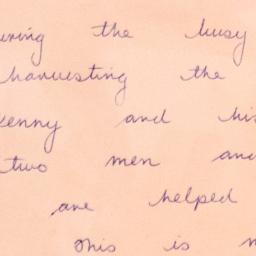 during the busy
harvesting the
kenny and his
two men and
are helped
This is